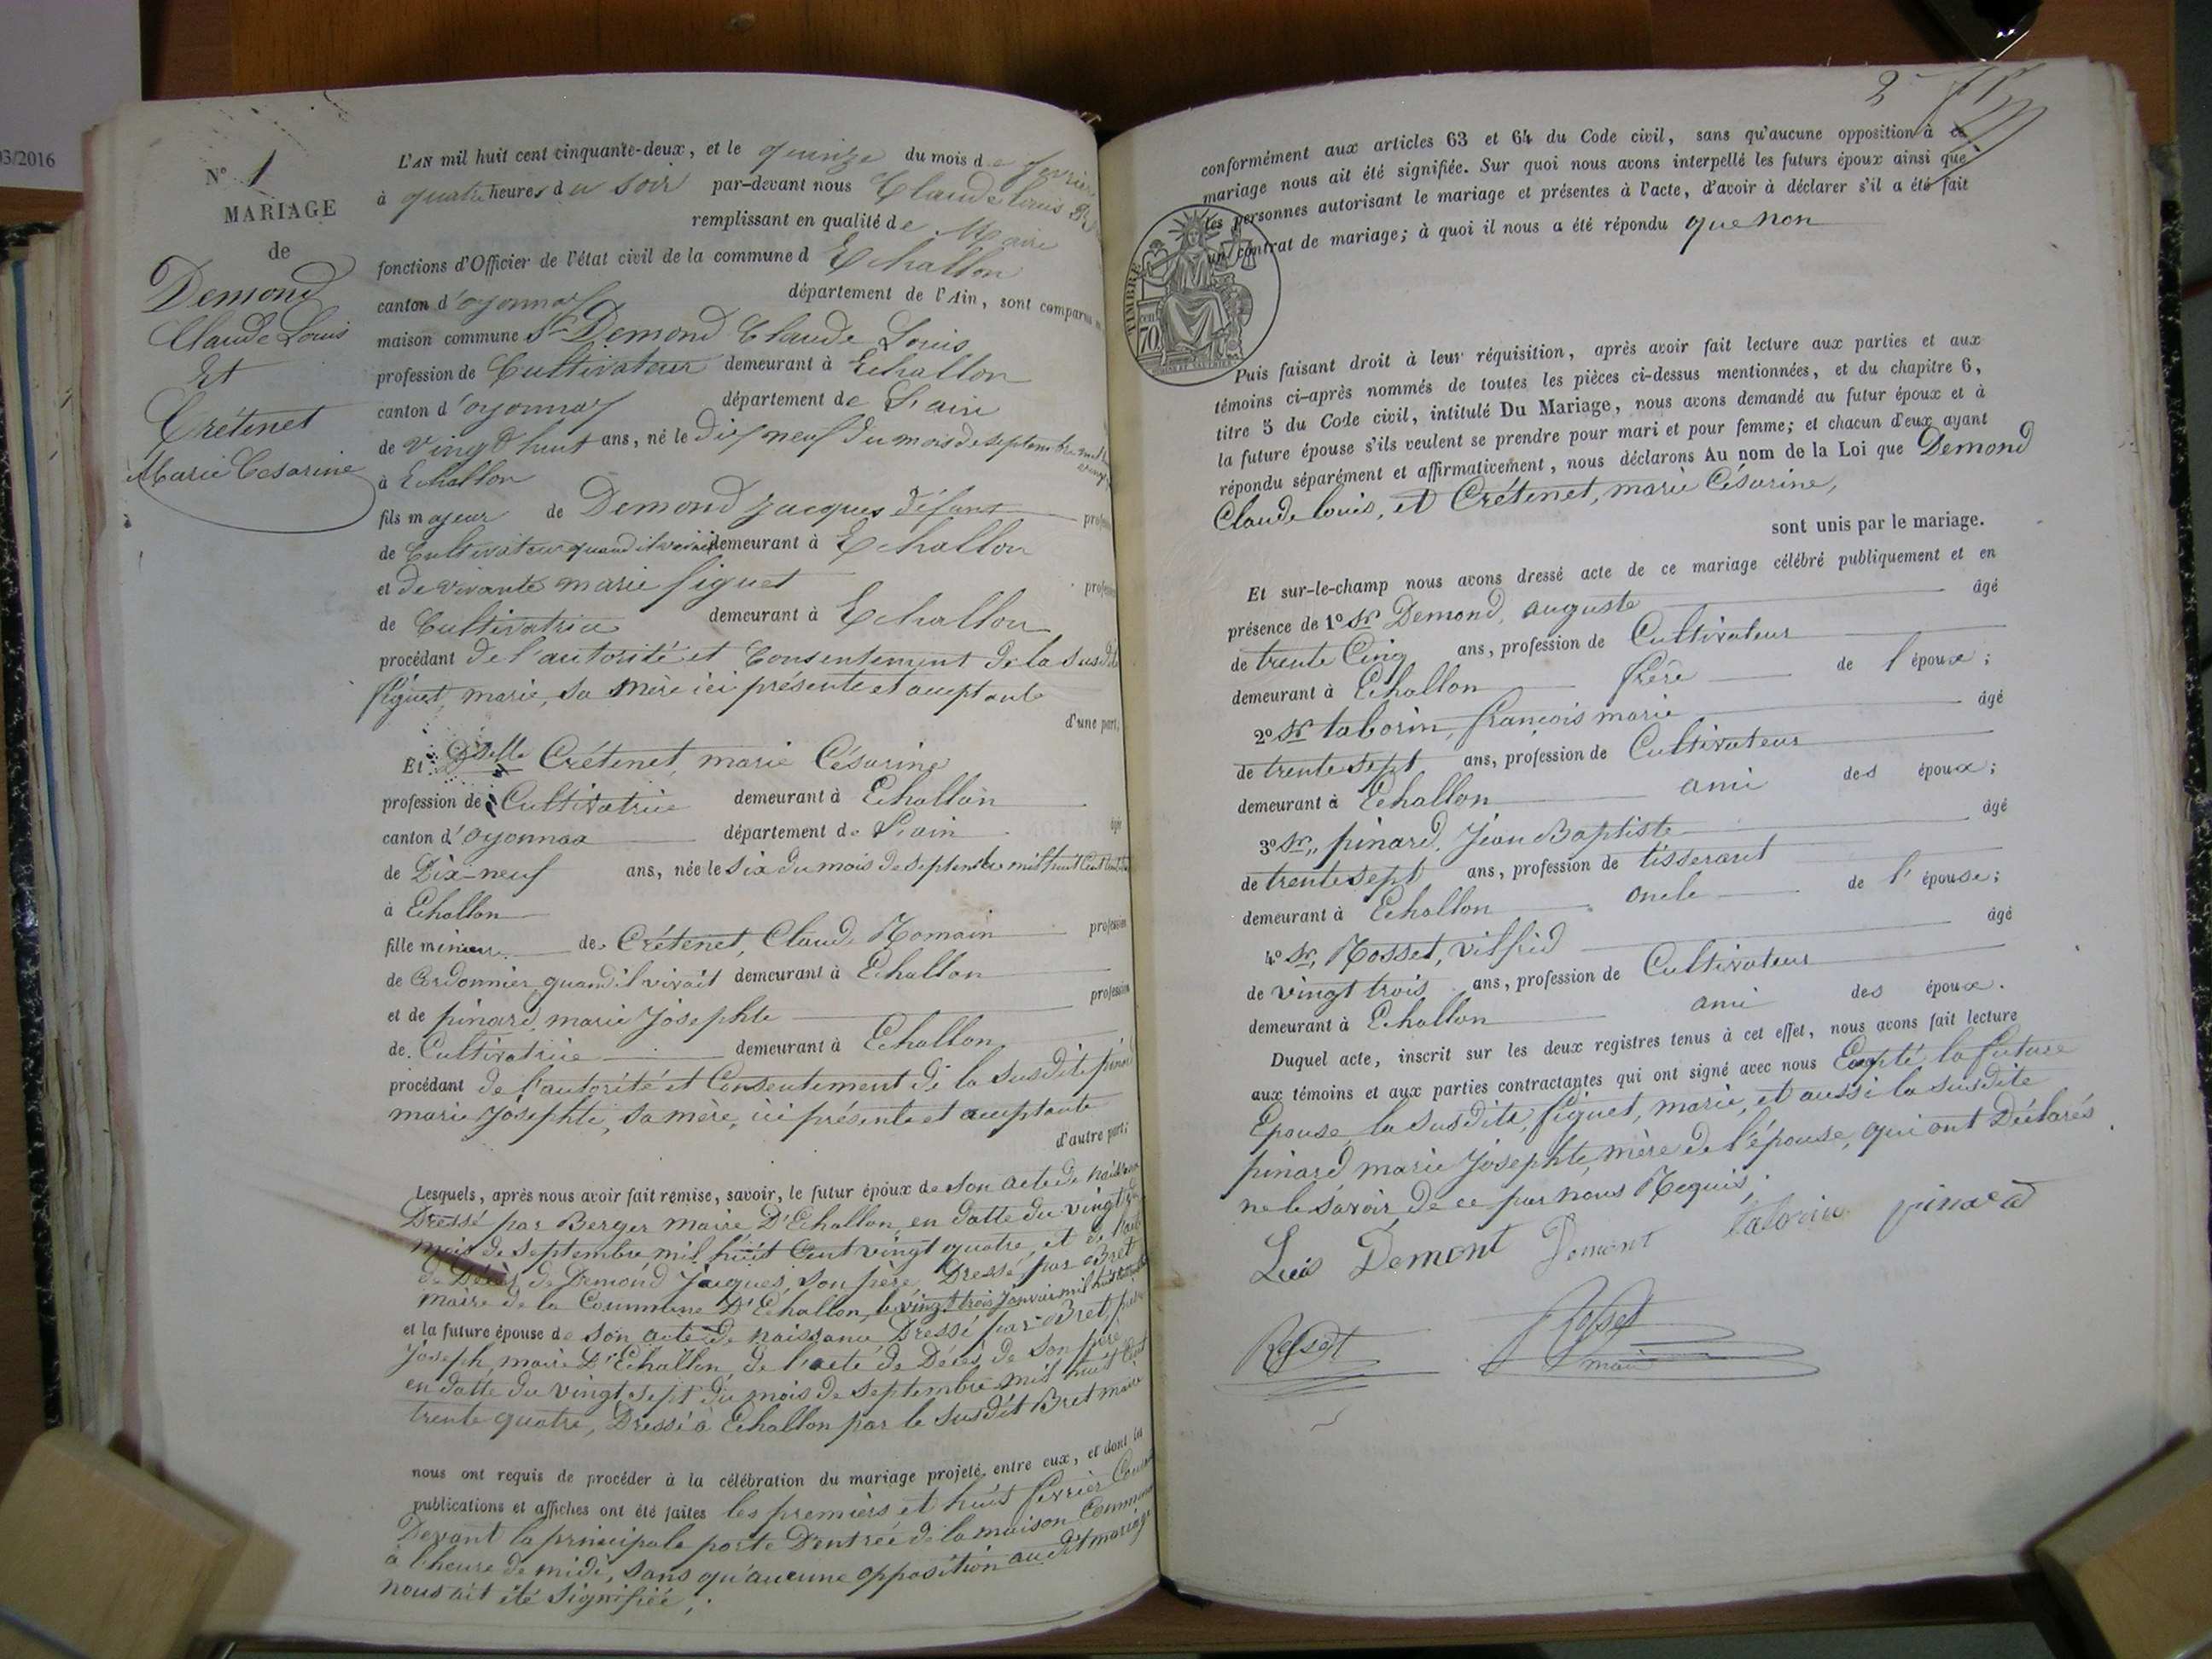 03/2016
N° 1
MARIAGE
de
Demond
Claude Louis
Et
Crétenet
Marie Cesarine
L'AN mil huit cent cinquante-deux, et le quinze du mois de fevrier
à quatre heures du soir par-devant nous Claude Louis
remplissant en qualité de Maire
fonctions d'Officier de l'état civil de la commune d Echallon
canton d'oyonnax département de l'Ain, sont comparus
maison commune Sr Demond Claude Louis
profession de Cultivateur demeurant à Echallon
canton d'oyonnax département de L'ain
de vingt huit ans, né le dix neuf du mois de septembre
à Echallon
fils majeur de Demond Jacques défunt
de Cultivateur quand il vivait demeurant à Echallon
et de vivante marie figuet
de Cultivatrice demeurant à Echallon
procédant de l'autorité et Consentement de la susdite
figuet, marie, sa mère ici présente et acceptante
d'une part;
Et Dselle Crétenet, marie Césarine
profession de Cultivatrice demeurant à Echallon
canton d'oyonnax département de L'ain
de Dix-neuf ans, née le six du mois de septembre mil huit cent
à Echallon
fille mineure de Crétenet, Claude Romain profession
de Cordonnier quand il vivait demeurant à Echallon
et de pinard, marie Josephte profession
de Cultivatrice demeurant à Echallon
procédant de l'autorité et Consentement de la susdite pinard
marie Josephte, sa mère, ici présente et acceptante
d'autre part;
Lesquels, après nous avoir fait remise, savoir, le futur époux de son acte de naissance
Dressé par Berger maire D'Echallon, en datte du vingt du
mois de septembre mil huit Cent vingt quatre, et de l'acte
de Décès de Demond Jacques, son père, Dressé par Bret
maire de la Commune D'Echallon, le vingt trois Janvier mil huit
et la future épouse de son acte de naissance Dressé par Bret,
Joseph, maire D'Echallon, de l'acte de Décès de son père
en datte du vingt sept du mois de septembre mil huit Cent
trente quatre, Dressé à Echallon par le susdit Bret maire
nous ont requis de procéder à la célébration du mariage projeté entre eux, et dont les
publications et affiches ont été faites les premiers et huit fevrier Courant
Devant la principale porte D'entrée de la maison Commune
à l'heure de midi, sans qu'aucune opposition au dit mariage
nous ait été signifiée;
2
conformément aux articles 63 et 64 du Code civil, sans qu'aucune opposition à ce
mariage nous ait été signifiée. Sur quoi nous avons interpellé les futurs époux ainsi que
les personnes autorisant le mariage et présentes à l'acte, d'avoir à déclarer s'il a été fait
un contrat de mariage; à quoi il nous a été répondu que non
TIMBRE
70
Puis faisant droit à leur réquisition, après avoir fait lecture aux parties et aux
témoins ci-après nommés de toutes les pièces ci-dessus mentionnées, et du chapitre 6,
titre 5 du Code civil, intitulé Du Mariage, nous avons demandé au futur époux et à
la future épouse s'ils veulent se prendre pour mari et pour femme; et chacun d'eux ayant
répondu séparément et affirmativement, nous déclarons Au nom de la Loi que Demond
Claude louis, et Crétenet, marie Césarine,
sont unis par le mariage.
Et sur-le-champ nous avons dressé acte de ce mariage célébré publiquement et en
présence de 1° Sr Demond, auguste âgé
de trente Cinq ans, profession de Cultivateur
demeurant à Echallon frère de l'époux;
2° Sr taborin, françois marie âgé
de trente sept ans, profession de Cultivateur
demeurant à Echallon ami des époux;
3° Sr, pinard, Jean Baptiste âgé
de trente sept ans, profession de tisserant
demeurant à Echallon oncle de l'épouse;
4° Sr, Rosset, vilfrid âgé
de vingt trois ans, profession de Cultivateur
demeurant à Echallon ami des époux.
Duquel acte, inscrit sur les deux registres tenus à cet effet, nous avons fait lecture
aux témoins et aux parties contractantes qui ont signé avec nous Excepté la future
Epouse, la susdite, figuet, marie, et aussi la susdite
pinard, marie Josephte, mère de l'épouse, qui ont Déclarés
ne le savoir de ce par nous Requis;
Luis Demont Demont taborin pinard
Rosset Rosset
maire